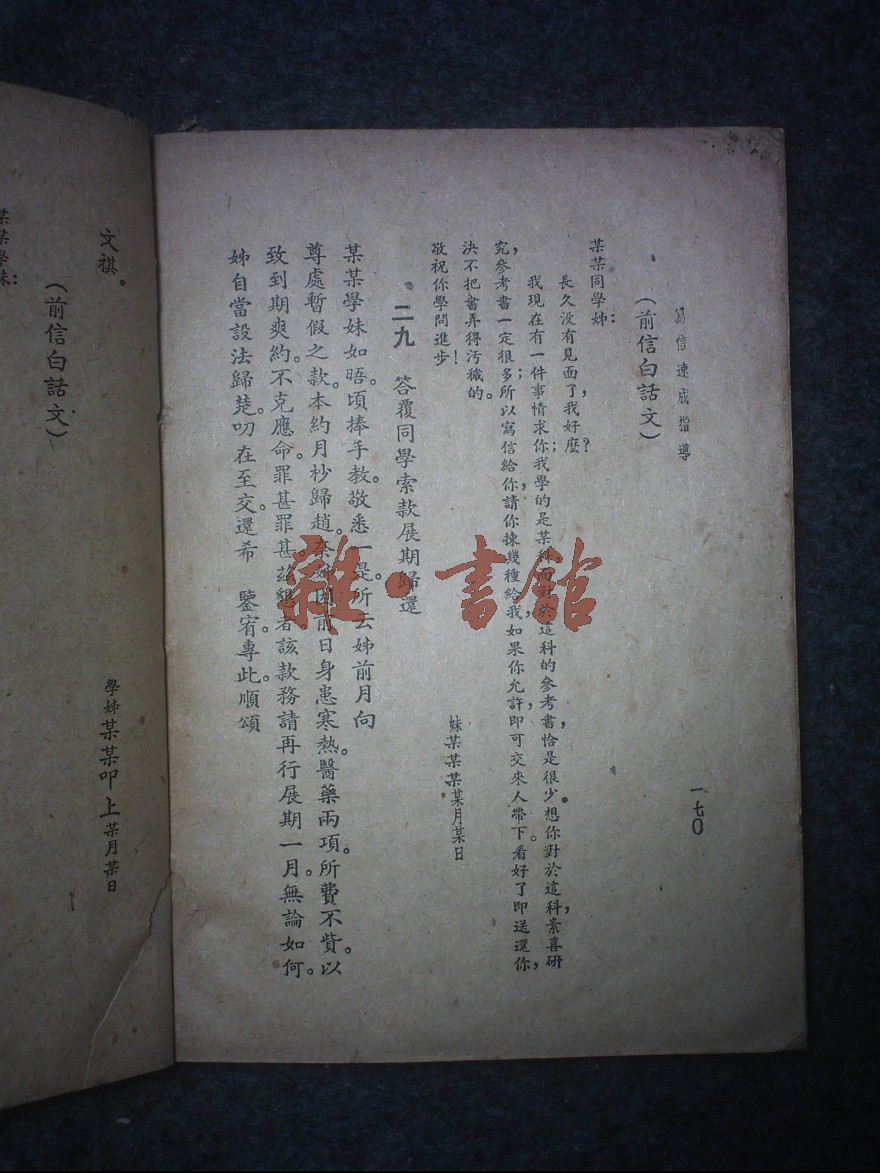 寫信速成指導
一七〇
（前信白話文）
某某同學姊：
長久没有見面了，我好麽？
我現在有一件事情求你；我學的是某科對於這科的參考書，恰是很少。想你對於這科，素喜研
究，參考書一定很多；所以寫信給你，請你揀幾種給我，如果你允許，即可交來人帶下。看好了即送還你，
決不把書弄得汚穢的。
敬祝你學問進步！
妹某某某某月某日
二九　答覆同學索款展期歸還
某某學妹如晤。頃捧手教。敬悉一是。所云姊前月向
尊處暫假之款。本約月杪歸趙。奈姊因前日身患寒熱。醫藥兩項。所費不貲。以
致到期爽約。不克應命。罪甚罪甚。茲懇者。該款務請再行展期一月。無論如何。
姊自當設法歸楚。叨在至交。還希　鑒宥。專此。順頌
文祺。
學姊某某叩上某月某日
（前信白話文）
某某學妹：
雜·書館